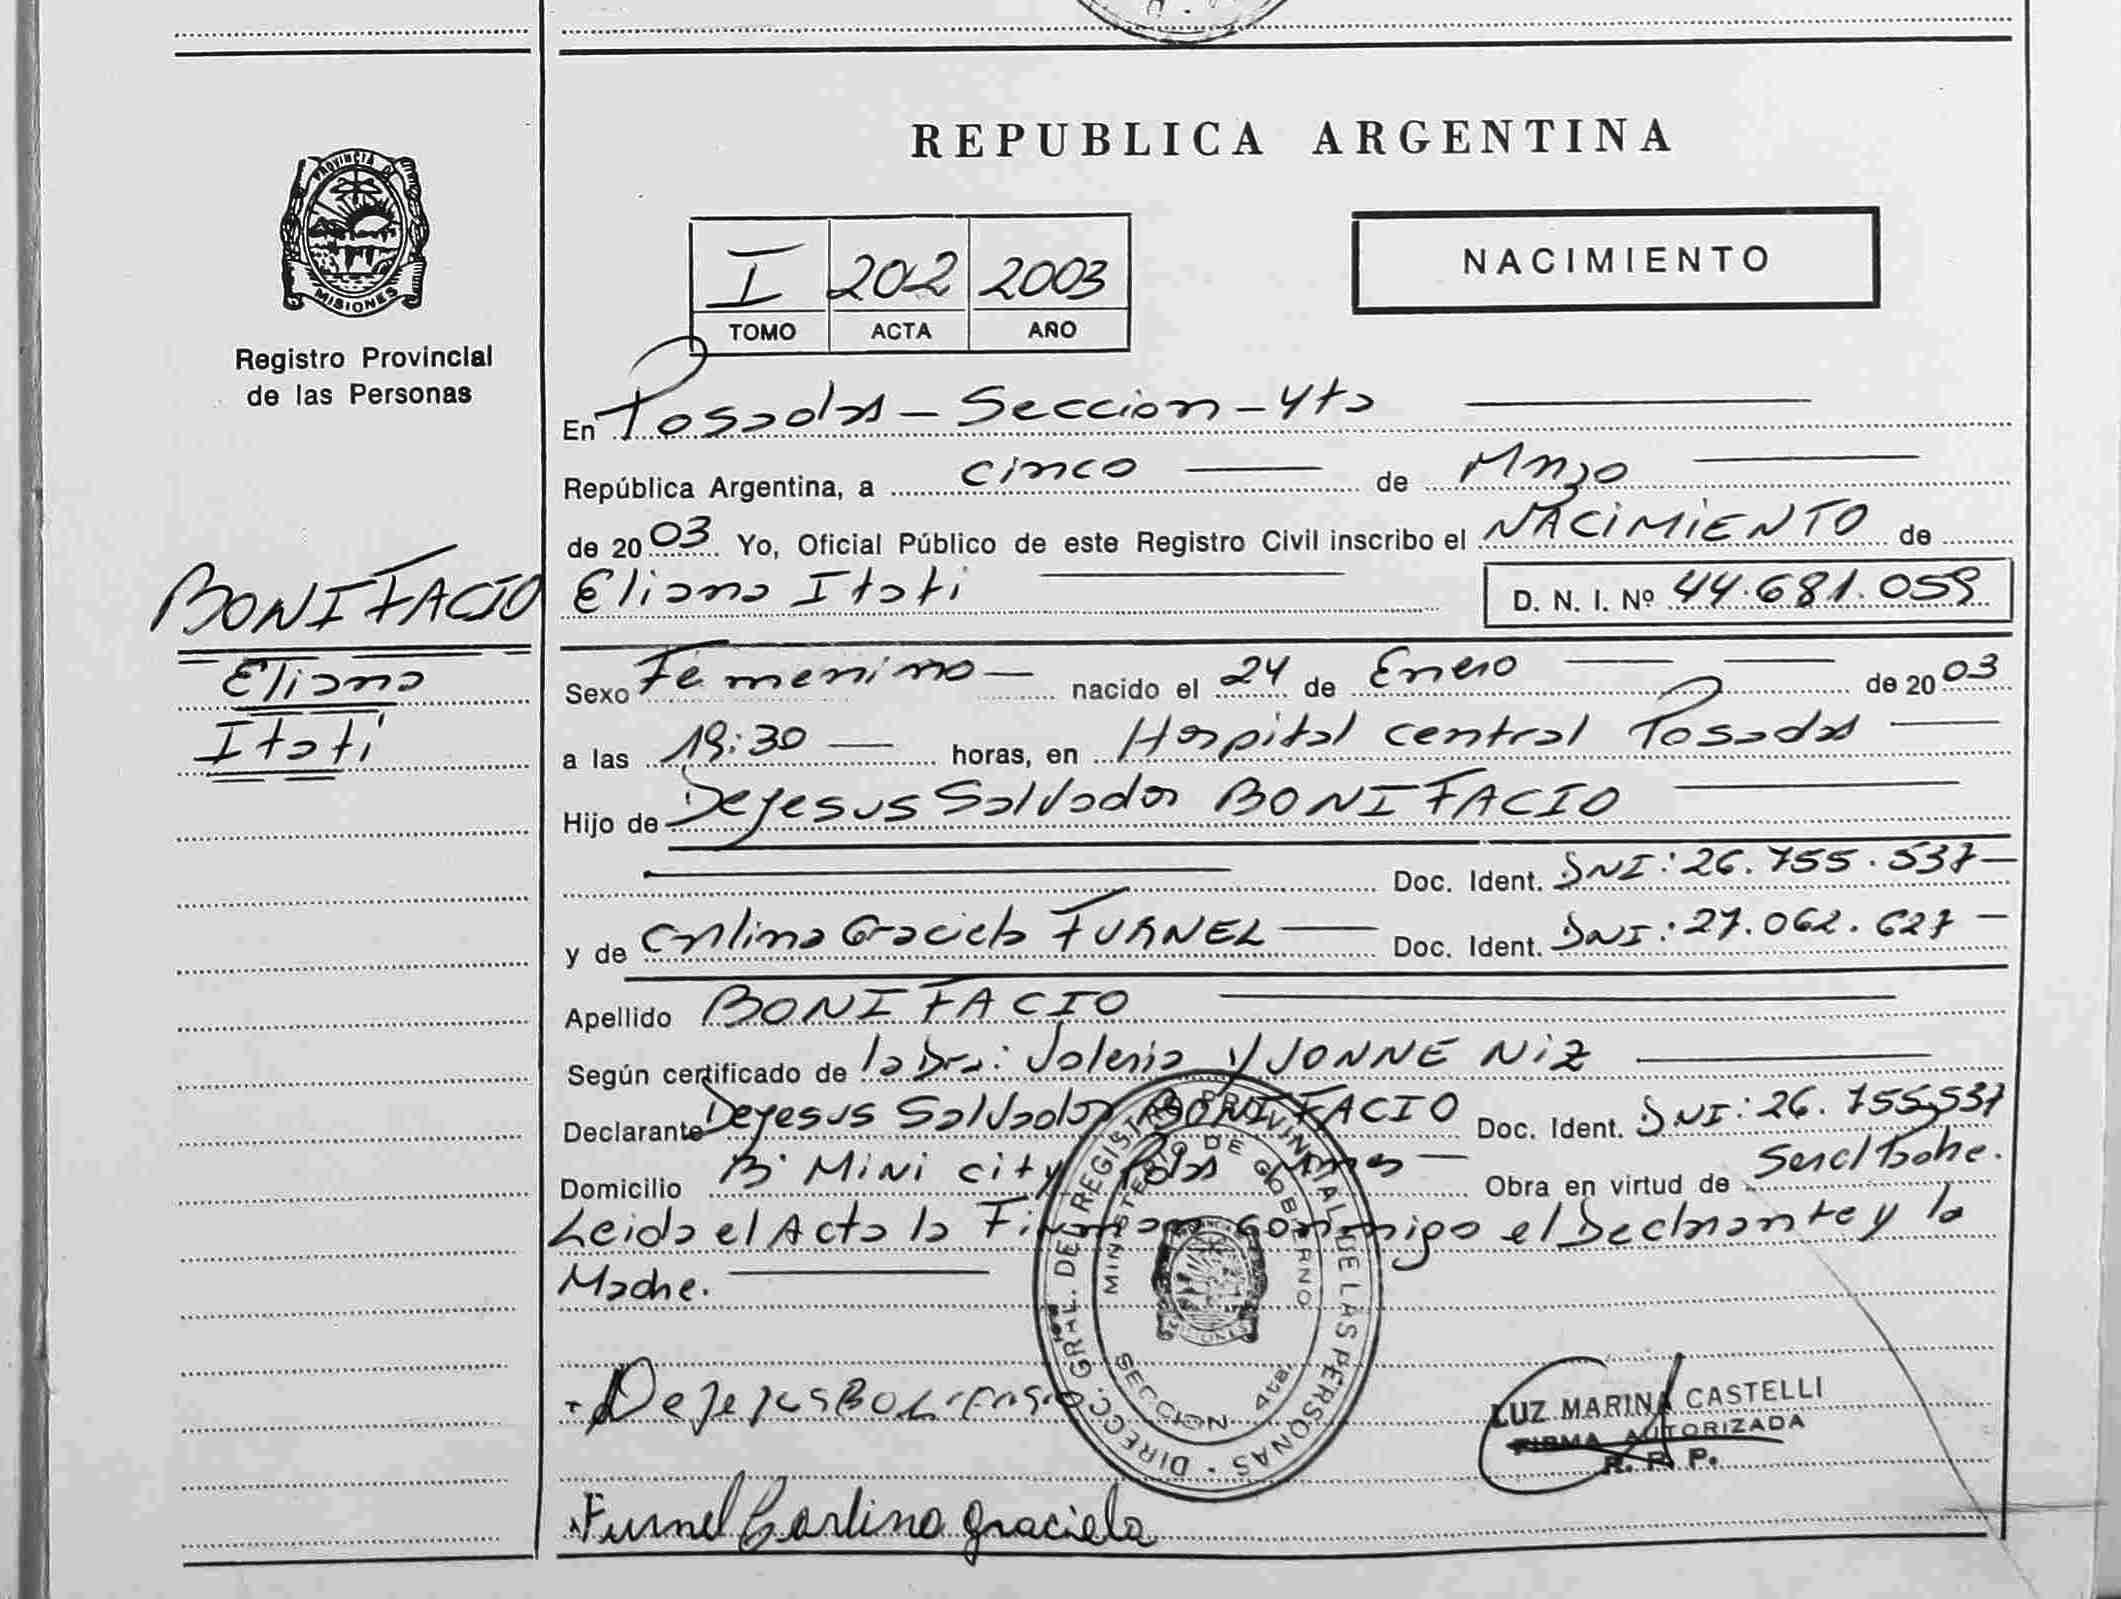 REPUBLICA ARGENTINA
PROVINCIA DE
MISIONES
Registro Provincial
de las Personas
I 202 2003
TOMO ACTA AÑO
NACIMIENTO
En Posadas - Seccion - 4ta
República Argentina, a cinco de Marzo
de 2003 Yo, Oficial Público de este Registro Civil inscribo el NACIMIENTO de
BONIFACIO
Eliana Itati
D. N. I. Nº 44.681.059
Eliana
Itati
Sexo Femenino nacido el 24 de Enero de 2003
a las 19:30 horas, en Hospital Central Posadas
Hijo de Dejesus Salvador BONIFACIO
Doc. Ident. DNI: 26.755.537
y de Carlina Graciela FURNEL Doc. Ident. DNI: 27.062.627
Apellido BONIFACIO
Según certificado de la Dra: Valeria YVONNE NIZ
Declarante Dejesus Salvador BONIFACIO Doc. Ident. DNI: 26.755.537
Domicilio B· Mini city Pdas Mnes Obra en virtud de
Leida el Acta la Firman conmigo el Declarante y la
Madre.
DIRECC. GRAL. DEL REGISTRO PROVINCIAL DE LAS PERSONAS
MINISTERIO DE GOBIERNO
SECCION 4ta.
MISIONES
Dejesus Bonifasio
LUZ MARINA CASTELLI
FIRMA AUTORIZADA
R. P. P.
Furnel Carlina graciela